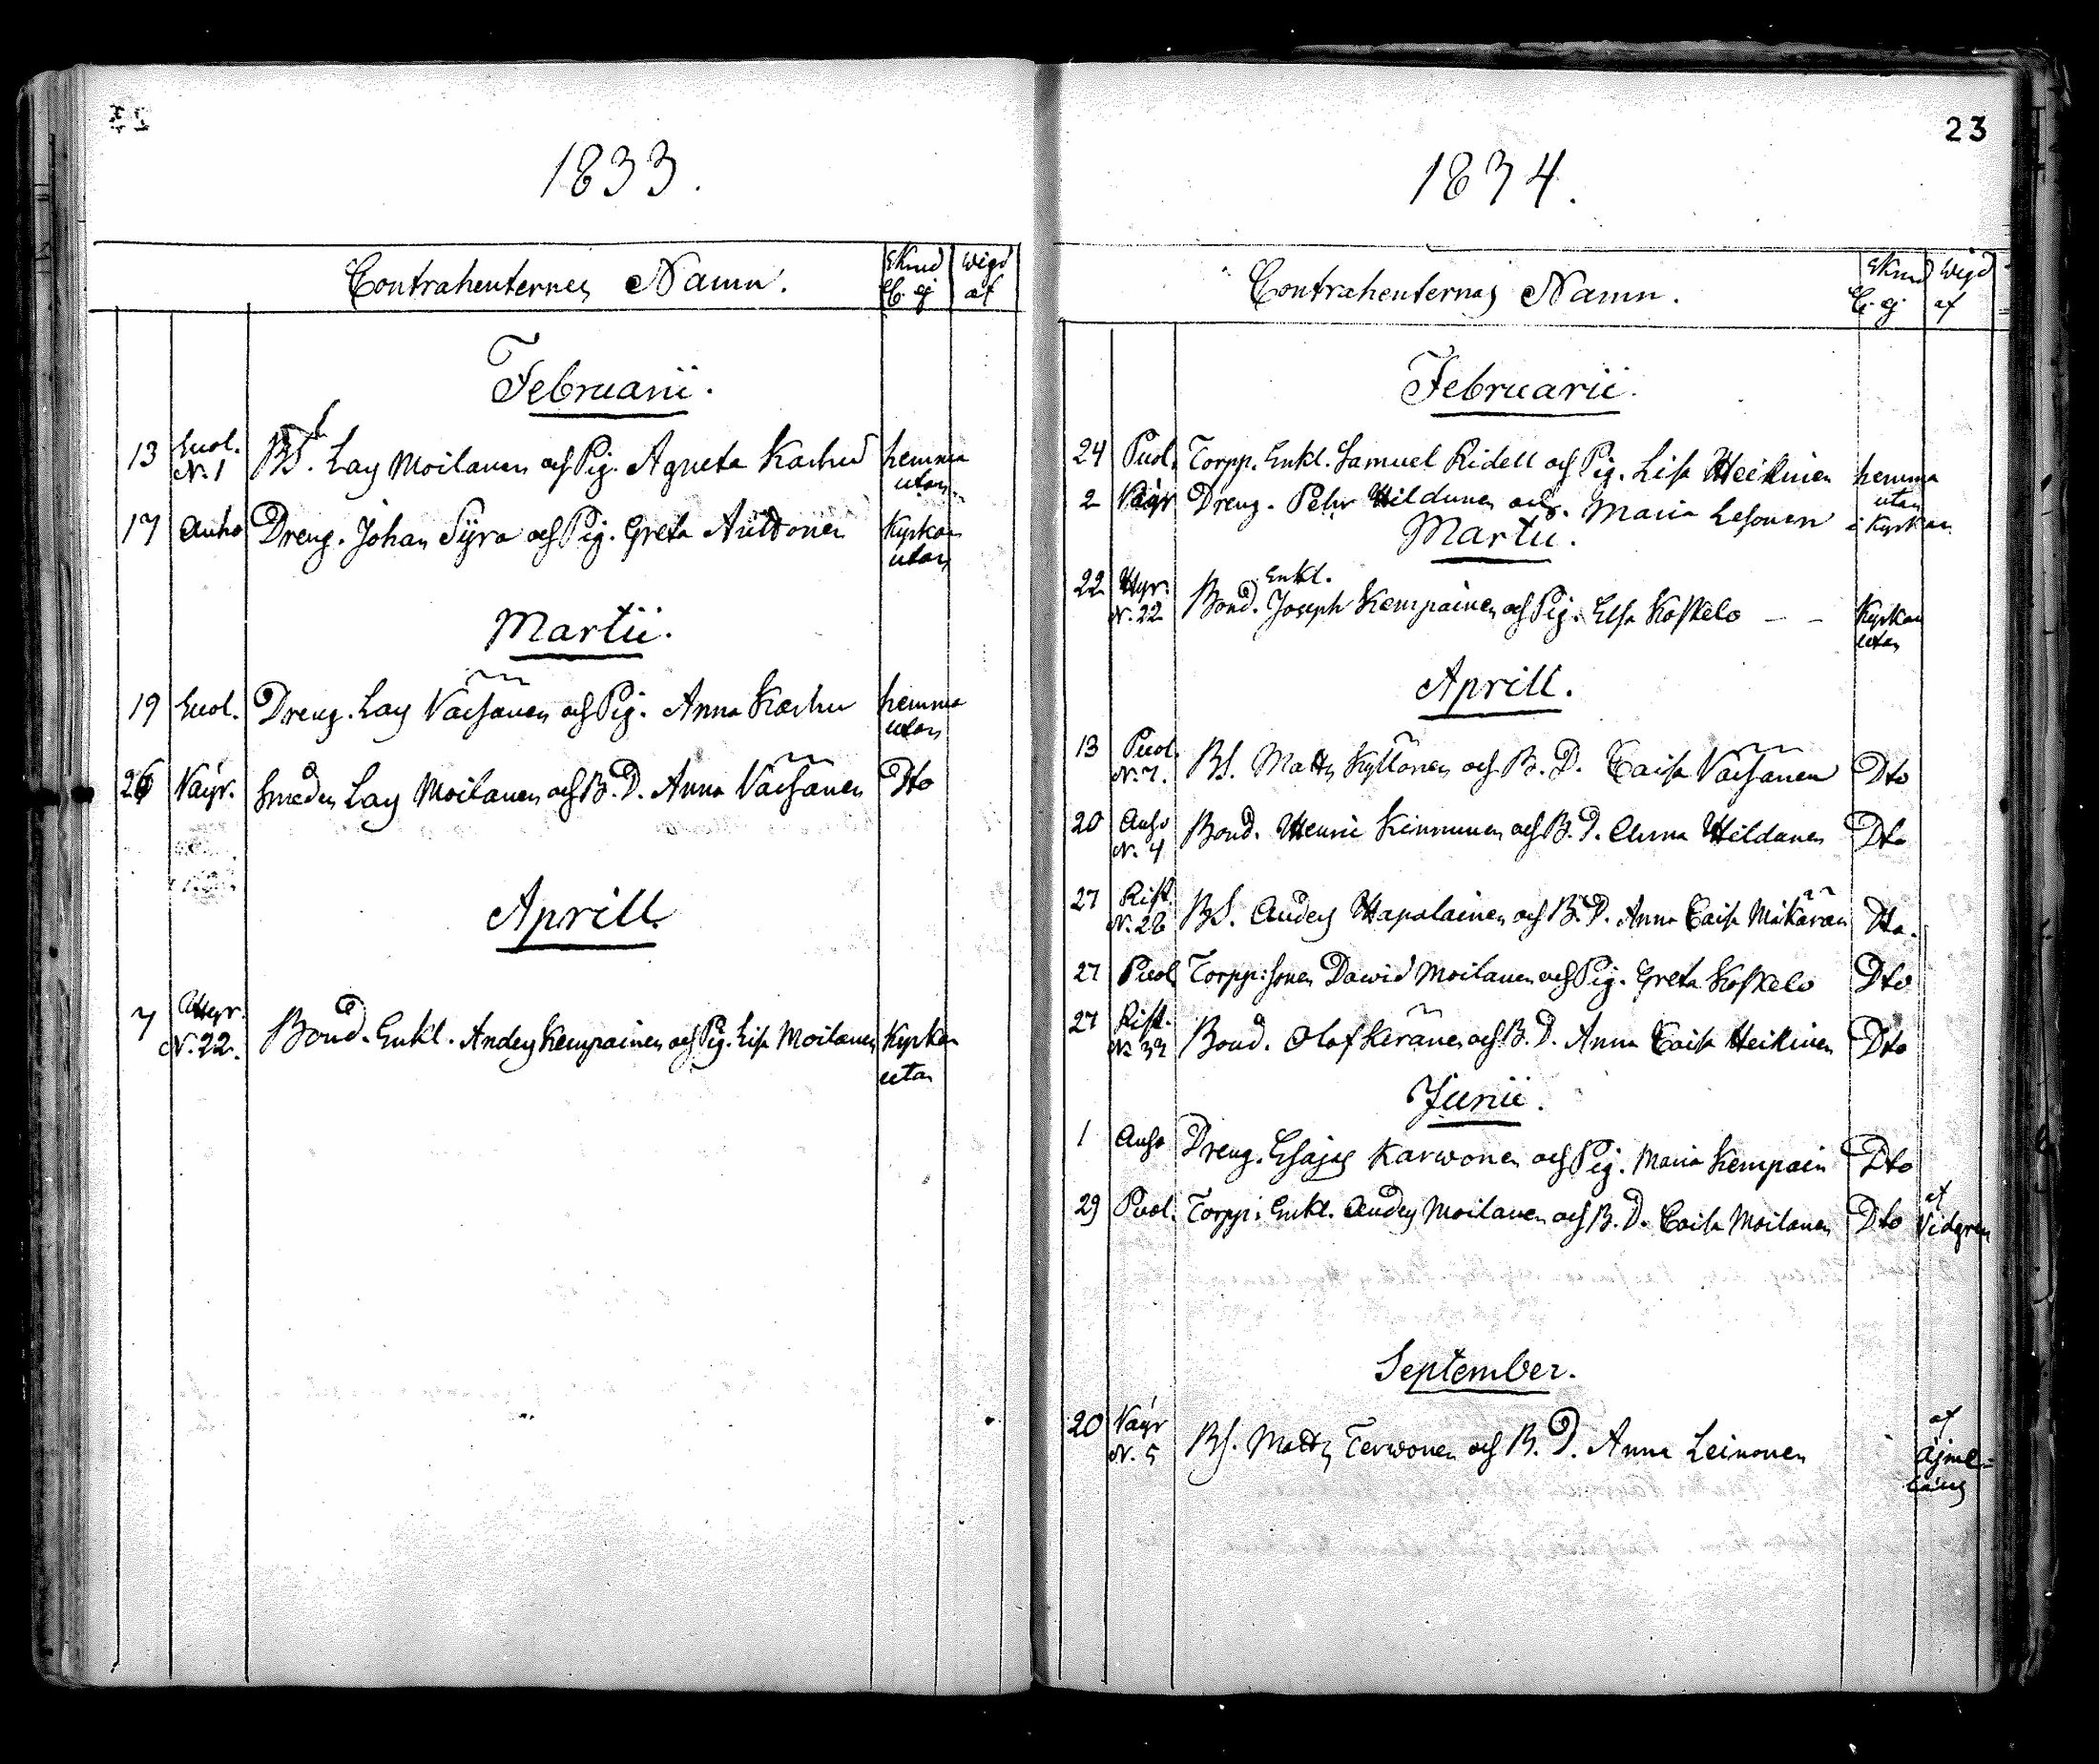 1833.
Contrahenternes Namn.
Skrud
Wigd
af
Februarii.
13 Euol. N. 1 BS. Lars Moilanen och Pig. Agneta Karhu hemma utan
17 Anho Dreng. Johan Syra och Pig. Greta Anttonen Kyrkan utan
Martii.
19 Euol. Dreng. Lars Väisänen och Pig. Anna Karhu hemma utan
26 Väyr. Smeden Lars Moilanen och B. D. Anna Väisänen Dto
Aprill.
7 Hyr. N. 22. Bond. Enkl. Anders Kempainen och Pig. Lisa Moilanen Kyrkan utan
23
1834.
Contrahenternas Namn.
Skrud
Wigd
af
Februarii.
24 Puol. Torpp. Enkl. Samuel Ridell och Pig. Lisa Heikinen hemma utan
2 Väyr Dreng. Pehr Hildunen och. Maria Lesonen i Kyrkan.
Martii.
22 Hyr. N. 22 Bond. Enkl. Joseph Kempainen och Pig. Elsa Koskelo - - Kyrkan utan
Aprill.
13 Puol. N. 7. BS. Matts Kyllönen och B. D. Caisa Väisänen Dto
20 Anho N. 4 Bond. Henric Kinnunen och B. D. Anna Hildunen Dto
27 Rist. N. 28 BS. Anders Hapalainen och B. D. Anna Caisa Mikärän Dto.
27 Puol Torpp: sonen Dawid Moilanen och Pig. Greta Koskelo Dto
27 Rist. N. 32 Bond. Olof Keränen och B. D. Anna Caisa Heikinen Dto
Junii.
1 Anho Dreng. Esajas Karwonen och Pig. Maria Kempain Dto
29 Puol. Torpp: Enkl. Anders Moilanen och B. D. Caisa Moilanen Dto af Vidgren
September.
20 Väyr N. 5 BS. Matts Terwonen och B. D. Anna Leinonen af Äjmelæus